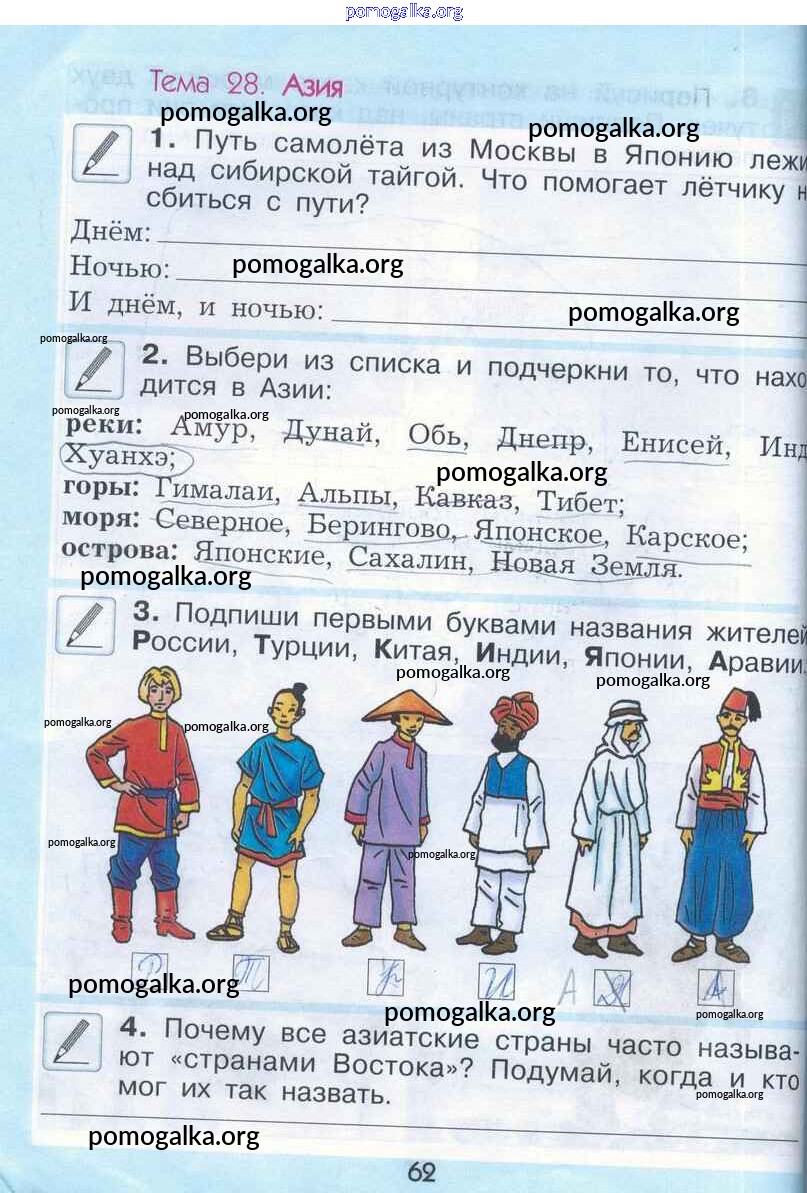 pomogalka.org
Тема 28. Азия
pomogalka.org
pomogalka.org
1. Путь самолёта из Москвы в Японию лежи
над сибирской тайгой. Что помогает лётчику н
сбиться с пути?
Днём:
Ночью:
pomogalka.org
И днём, и ночью:
pomogalka.org
pomogalka.org
2. Выбери из списка и подчеркни то, что нахо
дится в Азии:
pomogalka.org
pomogalka.org
реки: Амур, Дунай, Обь, Днепр, Енисей, Инд
Хуанхэ;
pomogalka.org
горы: Гималаи, Альпы, Кавказ, Тибет;
моря: Северное, Берингово, Японское, Карское;
острова: Японские, Сахалин, Новая Земля.
pomogalka.org
3. Подпиши первыми буквами названия жителей
России, Турции, Китая, Индии, Японии, Аравии.
pomogalka.org
pomogalka.org
pomogalka.org
pomogalka.org
pomogalka.org
pomogalka.org
Р Т И А Я А
pomogalka.org
pomogalka.org
pomogalka.org
4. Почему все азиатские страны часто называ-
ют «странами Востока»? Подумай, когда и кто
мог их так назвать.
pomogalka.org
pomogalka.org
62